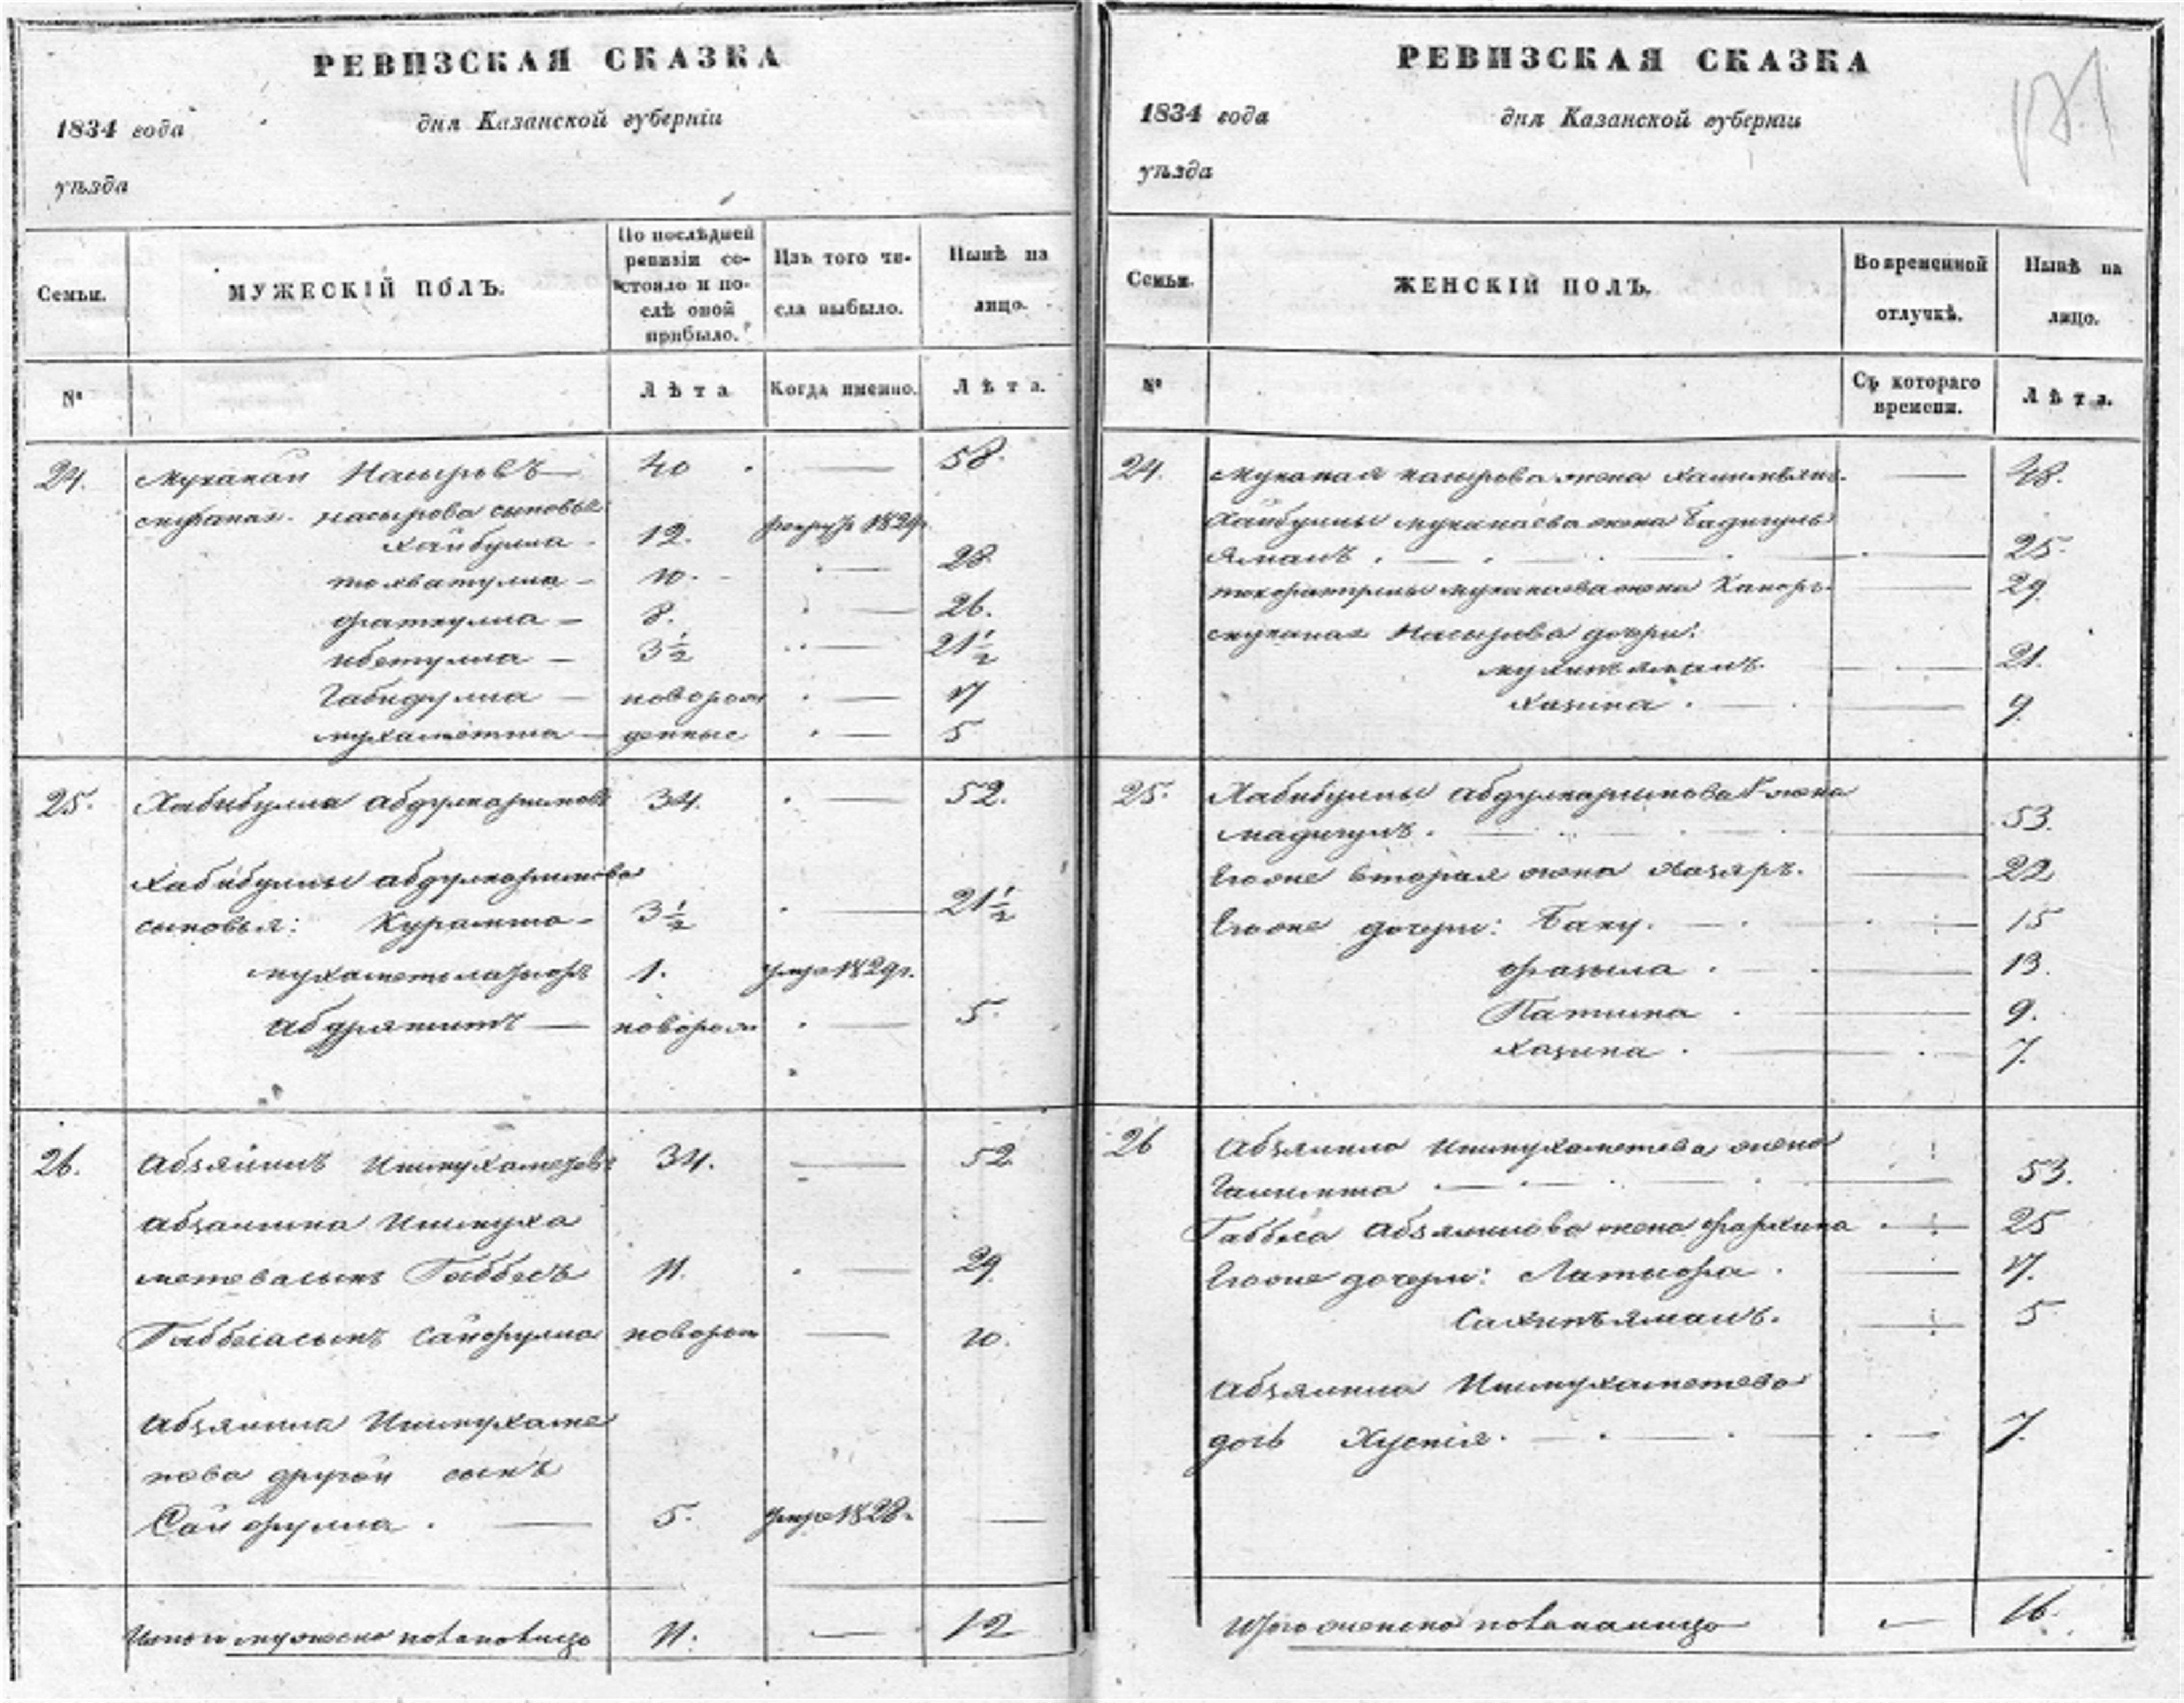 РЕВИЗСКАЯ СКАЗКА
1834 года дня Казанской губерніи
уѣзда
Семьи. МУЖЕСКІЙ ПОЛЪ. По послѣдней ревизіи состояло и послѣ оной прибыло. Изъ того числа выбыло. Нынѣ на лицо.
№ Лѣта Когда именно. Лѣта.
24. Муканай Насыровъ 40 — 58.
Муканая Насырова сыновья
Хайбулла 12. рекрутъ 1829г.
10. — 28
Фаткулла 8. — 26.
Ибетулла 3½ — 21½
Габидулла новорож — 17
Мухаметша денные — 5
25. Хабибулла Абдулкаримовъ 34. — 52.
Хабибуллы Абдулкаримова
сыновья: Хурамша 3½ — 21½
1. умре 1829г.
Абдряшитъ — новорож — 5.
26. Абзялилъ Ишмухаметевъ 34. — 52
Абзялила Ишмуха
метева сынъ Габбасъ 11. — 29.
Габбаса сынъ Сайфулла новорож — 10.
Абзялила Ишмухаме
това другой сынъ
Сайфулла. — 5. умре 1828. —
Итого мужеска пола налицо 11. — 12
РЕВИЗСКАЯ СКАЗКА
1834 года дня Казанской губерніи
уѣзда
171
Семьи. ЖЕНСКІЙ ПОЛЪ. Во временной отлучкѣ. Нынѣ на лицо.
№ Съ котораго времени. Лѣта.
24. Муканая Насырова жена — 48.
Хайбуллы Муканаева жена Бадигуль
Ямалъ. — 25.
Муканаева жена — 29
Муканая Насырова дочери:
21.
Хазина. — 9.
25. Хабибуллы Абдулкаримова 1я жена
Мадигулъ. — 53.
Егоже вторая жена — 22
Егоже дочери: Бану. — 15
Фазыла. — 13.
Патима. — 9.
Хазина. — 7.
26 Абзялила Ишмухаметева жена
53.
Габбаса Абзялилова жена — 25
Егоже дочери: Латыфа. — 7.
Сахипъямалъ. — 5
Абзялила Ишмухаметева
дочь Хуснія. — 7.
Итого женска пола налицо — 16.